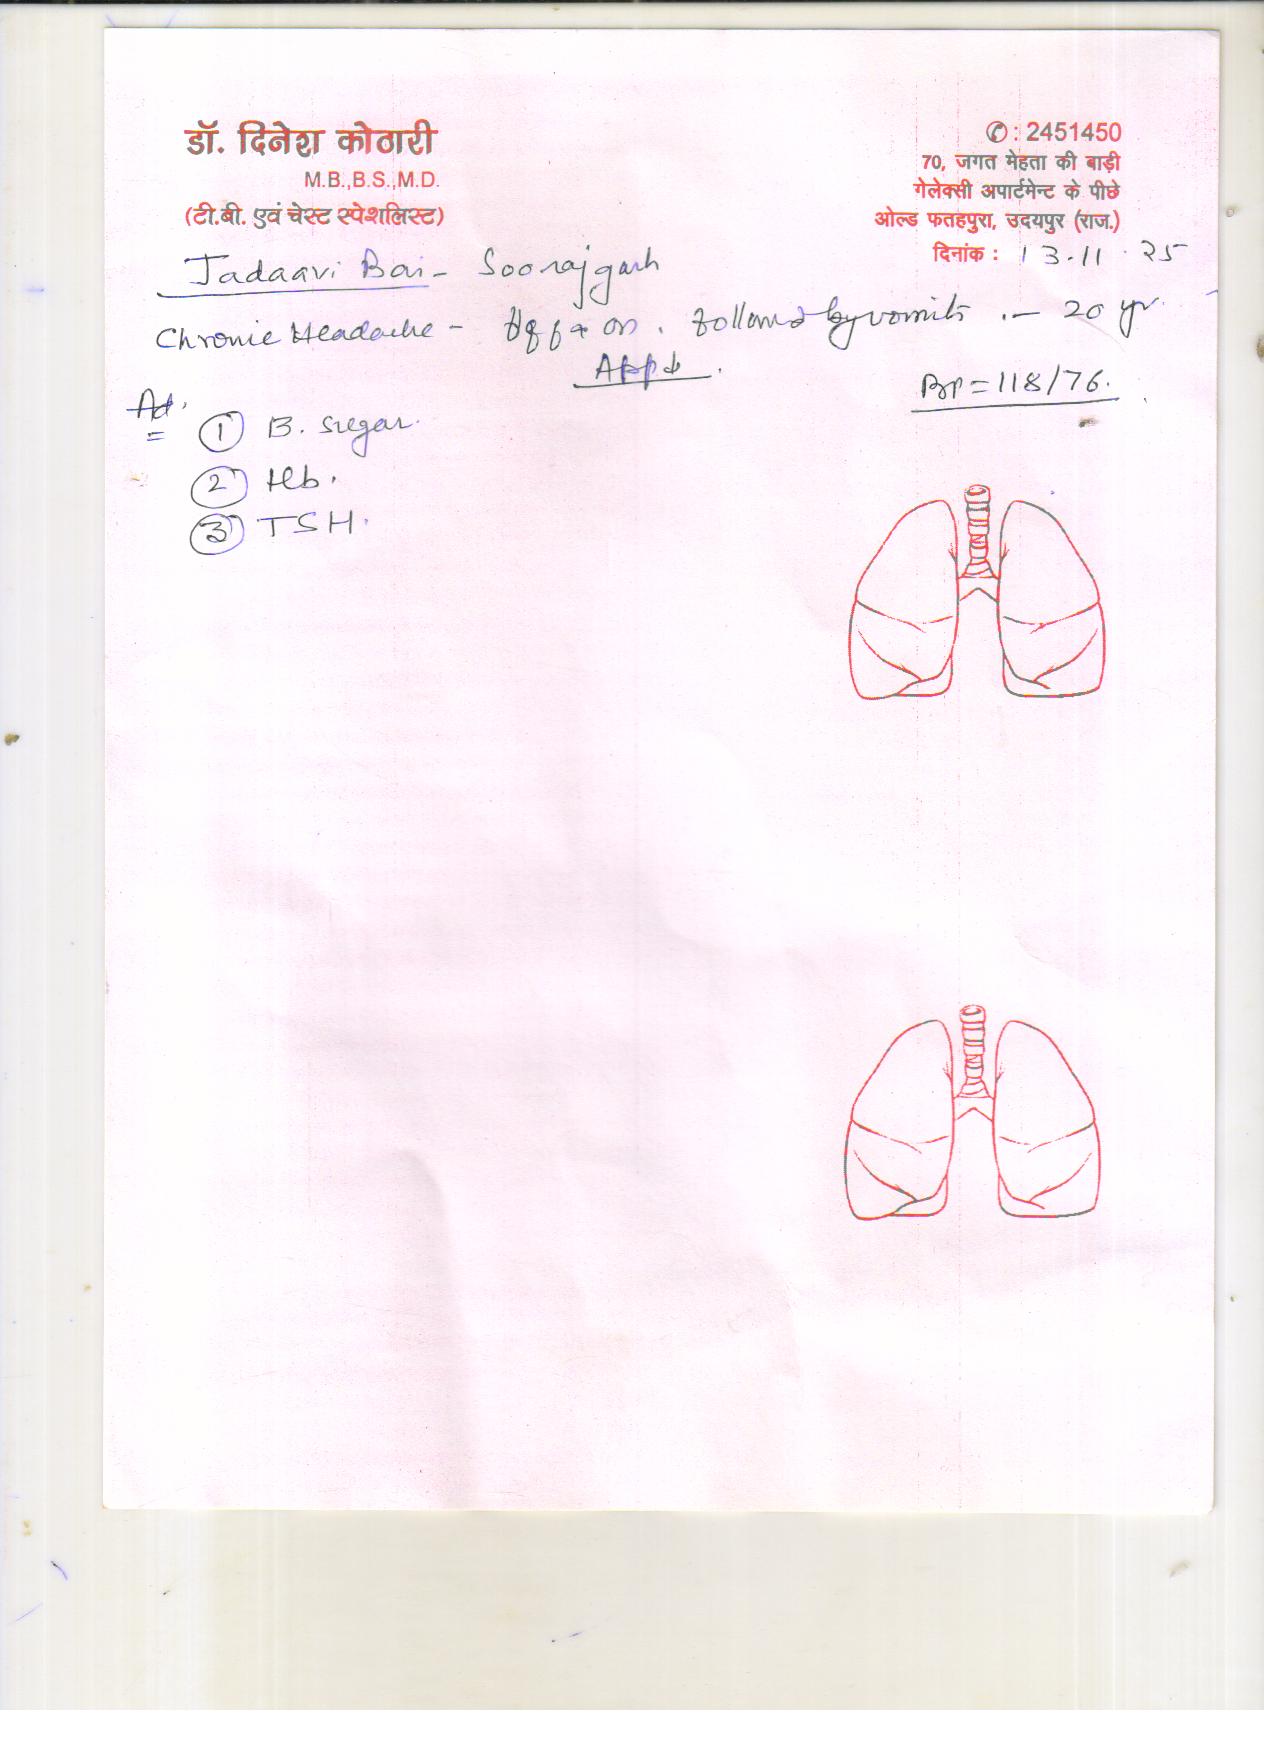 डॉ. दिनेश कोठारी
M.B.,B.S.,M.D.
(टी.बी. एवं चेस्ट स्पेशलिस्ट)
✆ : 2451450
70, जगत मेहता की बाड़ी
गेलेक्सी अपार्टमेन्ट के पीछे
ओल्ड फतहपुरा, उदयपुर (राज.)
दिनांक : 13.11.25
Jadaavi Bai - Soorajgarh
Chronic Headache - off & on. followed by vomits. - 20 yr.
App↓.
BP = 118/76.
Ad.
① B. Sugar.
② Hb.
③ TSH.